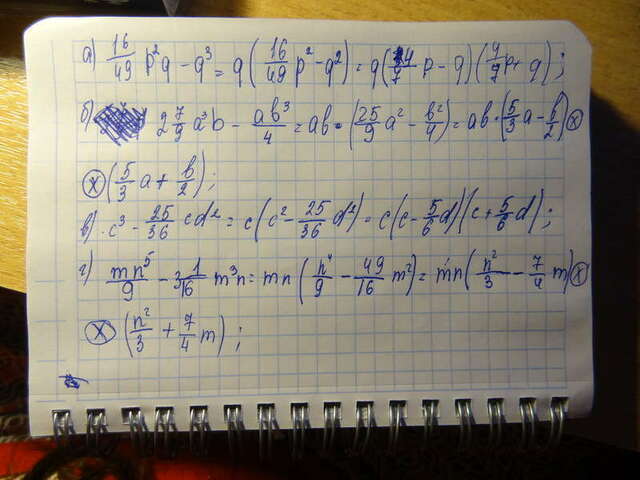 а) 16/49 p²q - q³ = q(16/49 p² - q²) = q(4/7 p - q)(4/7 p + q);
б) 2 7/9 a³b - ab³/4 = ab·(25/9 a² - b²/4) = ab·(5/3 a - b/2)⊗
⊗(5/3 a + b/2);
в) c³ - 25/36 cd² = c(c² - 25/36 d²) = c(c - 5/6 d)(c + 5/6 d);
г) mn⁵/9 - 3 1/16 m³n = mn(n⁴/9 - 49/16 m²) = mn(n²/3 - 7/4 m)⊗
⊗(n²/3 + 7/4 m);